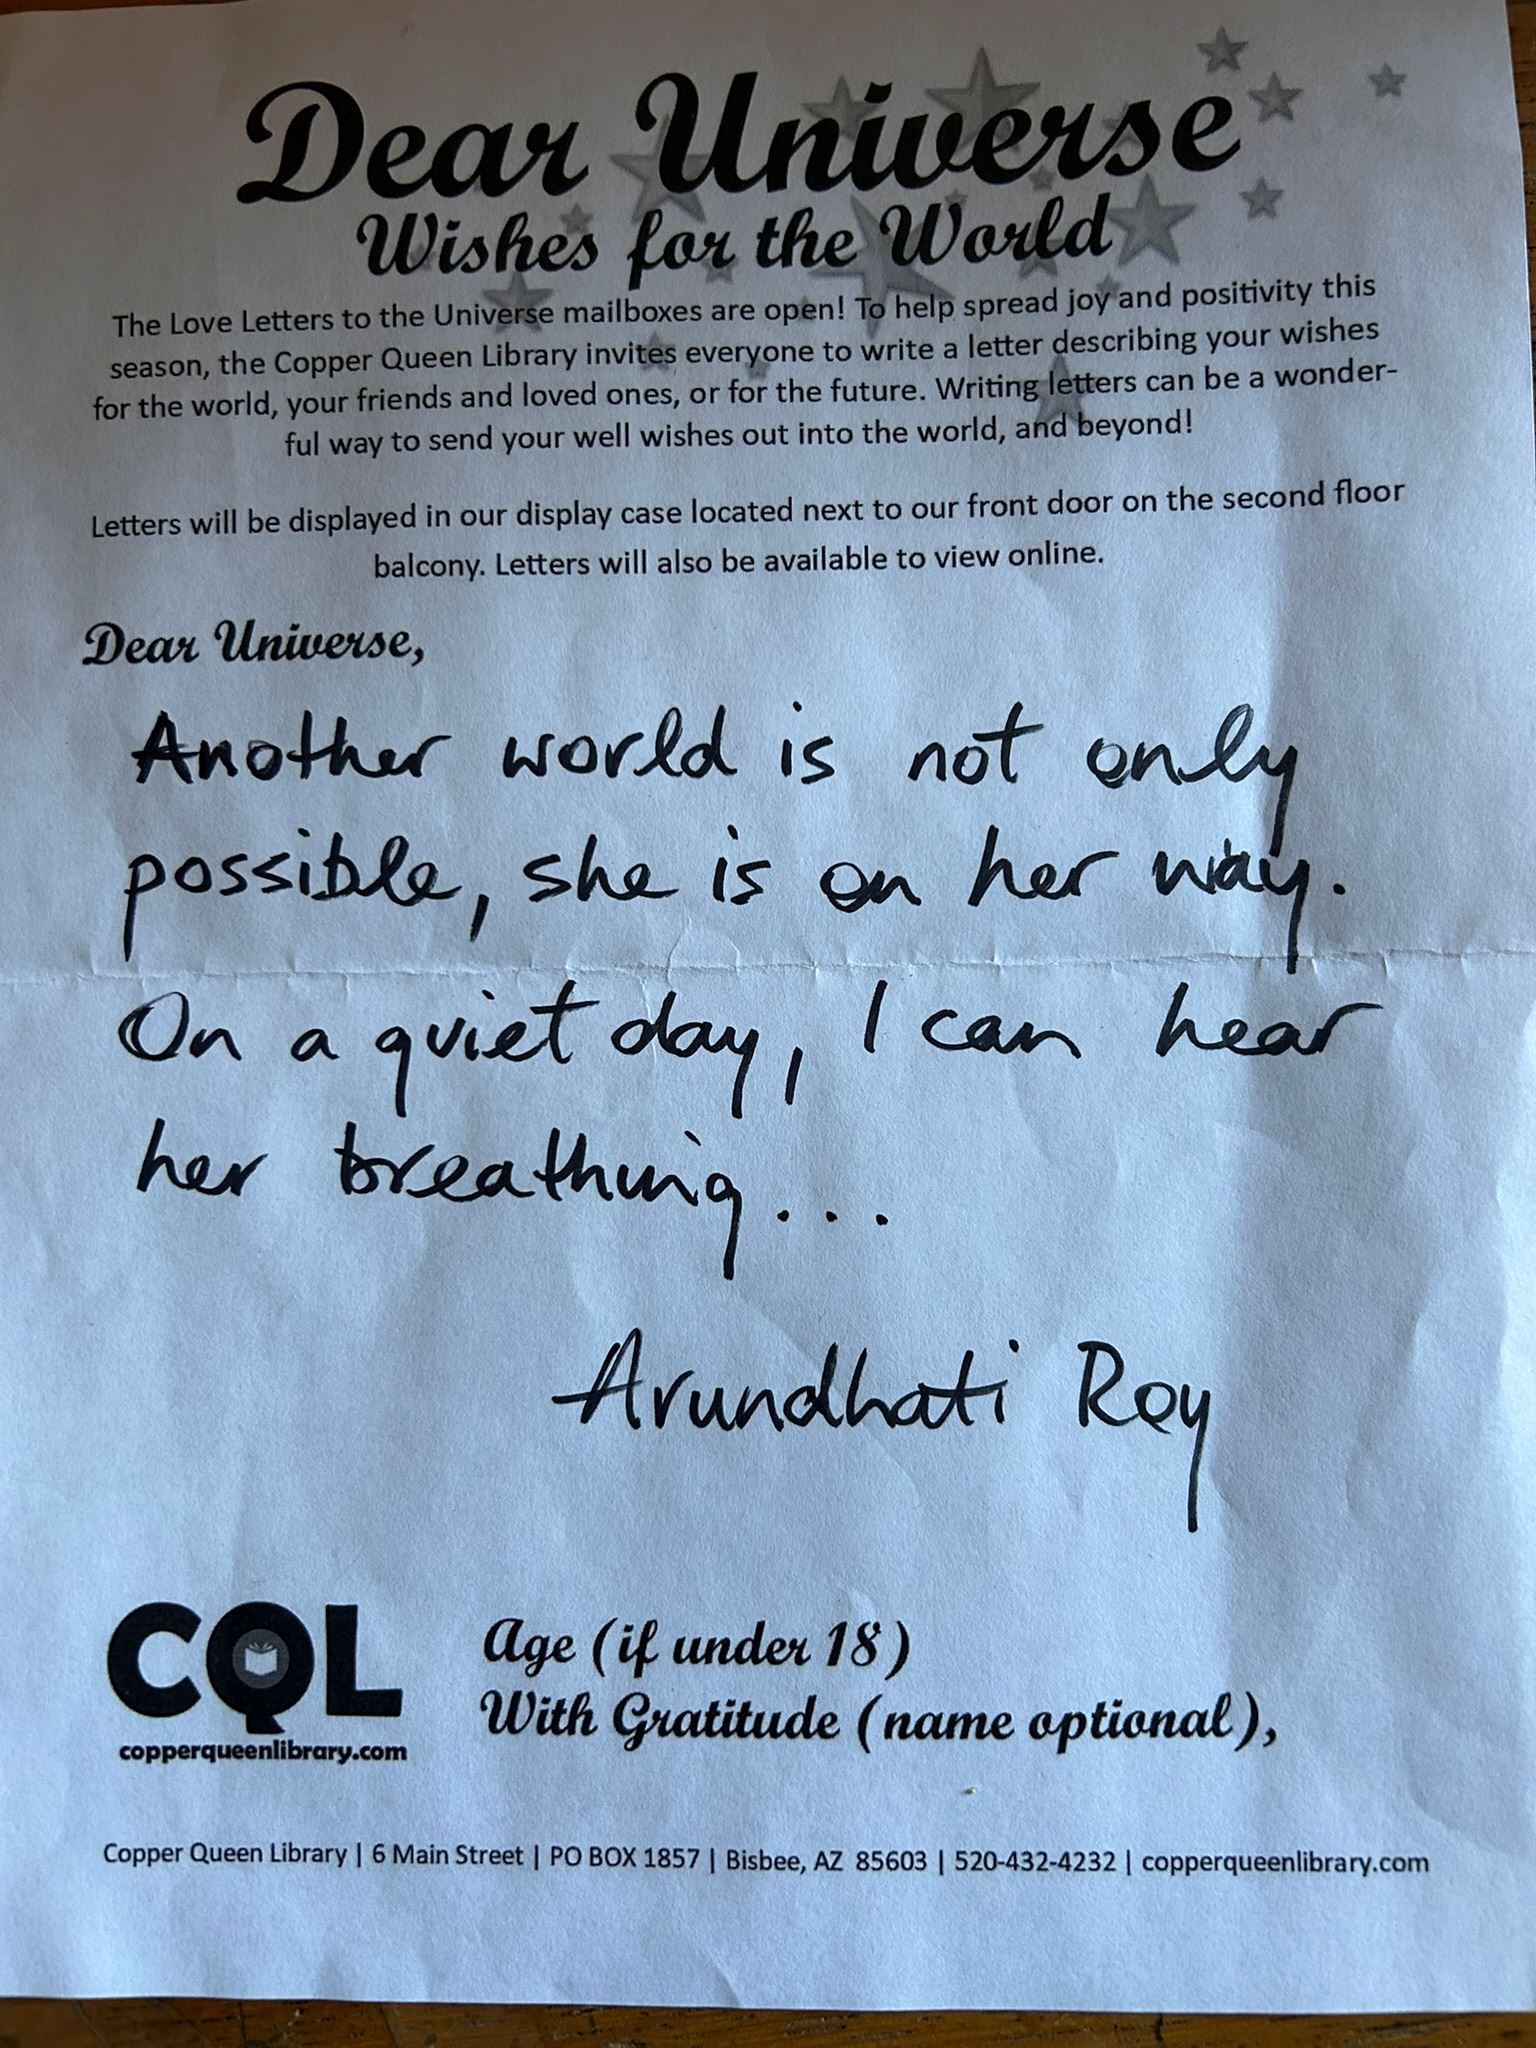 Dear Universe
Wishes for the World
The Love Letters to the Universe mailboxes are open! To help spread joy and positivity this
season, the Copper Queen Library invites everyone to write a letter describing your wishes
for the world, your friends and loved ones, or for the future. Writing letters can be a wonder-
ful way to send your well wishes out into the world, and beyond!
Letters will be displayed in our display case located next to our front door on the second floor
balcony. Letters will also be available to view online.
Dear Universe,
Another world is not only
possible, she is on her way.
On a quiet day, I can hear
her breathing...
Arundhati Roy
CQL
copperqueenlibrary.com
Age (if under 18)
With Gratitude (name optional),
Copper Queen Library | 6 Main Street | PO BOX 1857 | Bisbee, AZ 85603 | 520-432-4232 | copperqueenlibrary.com